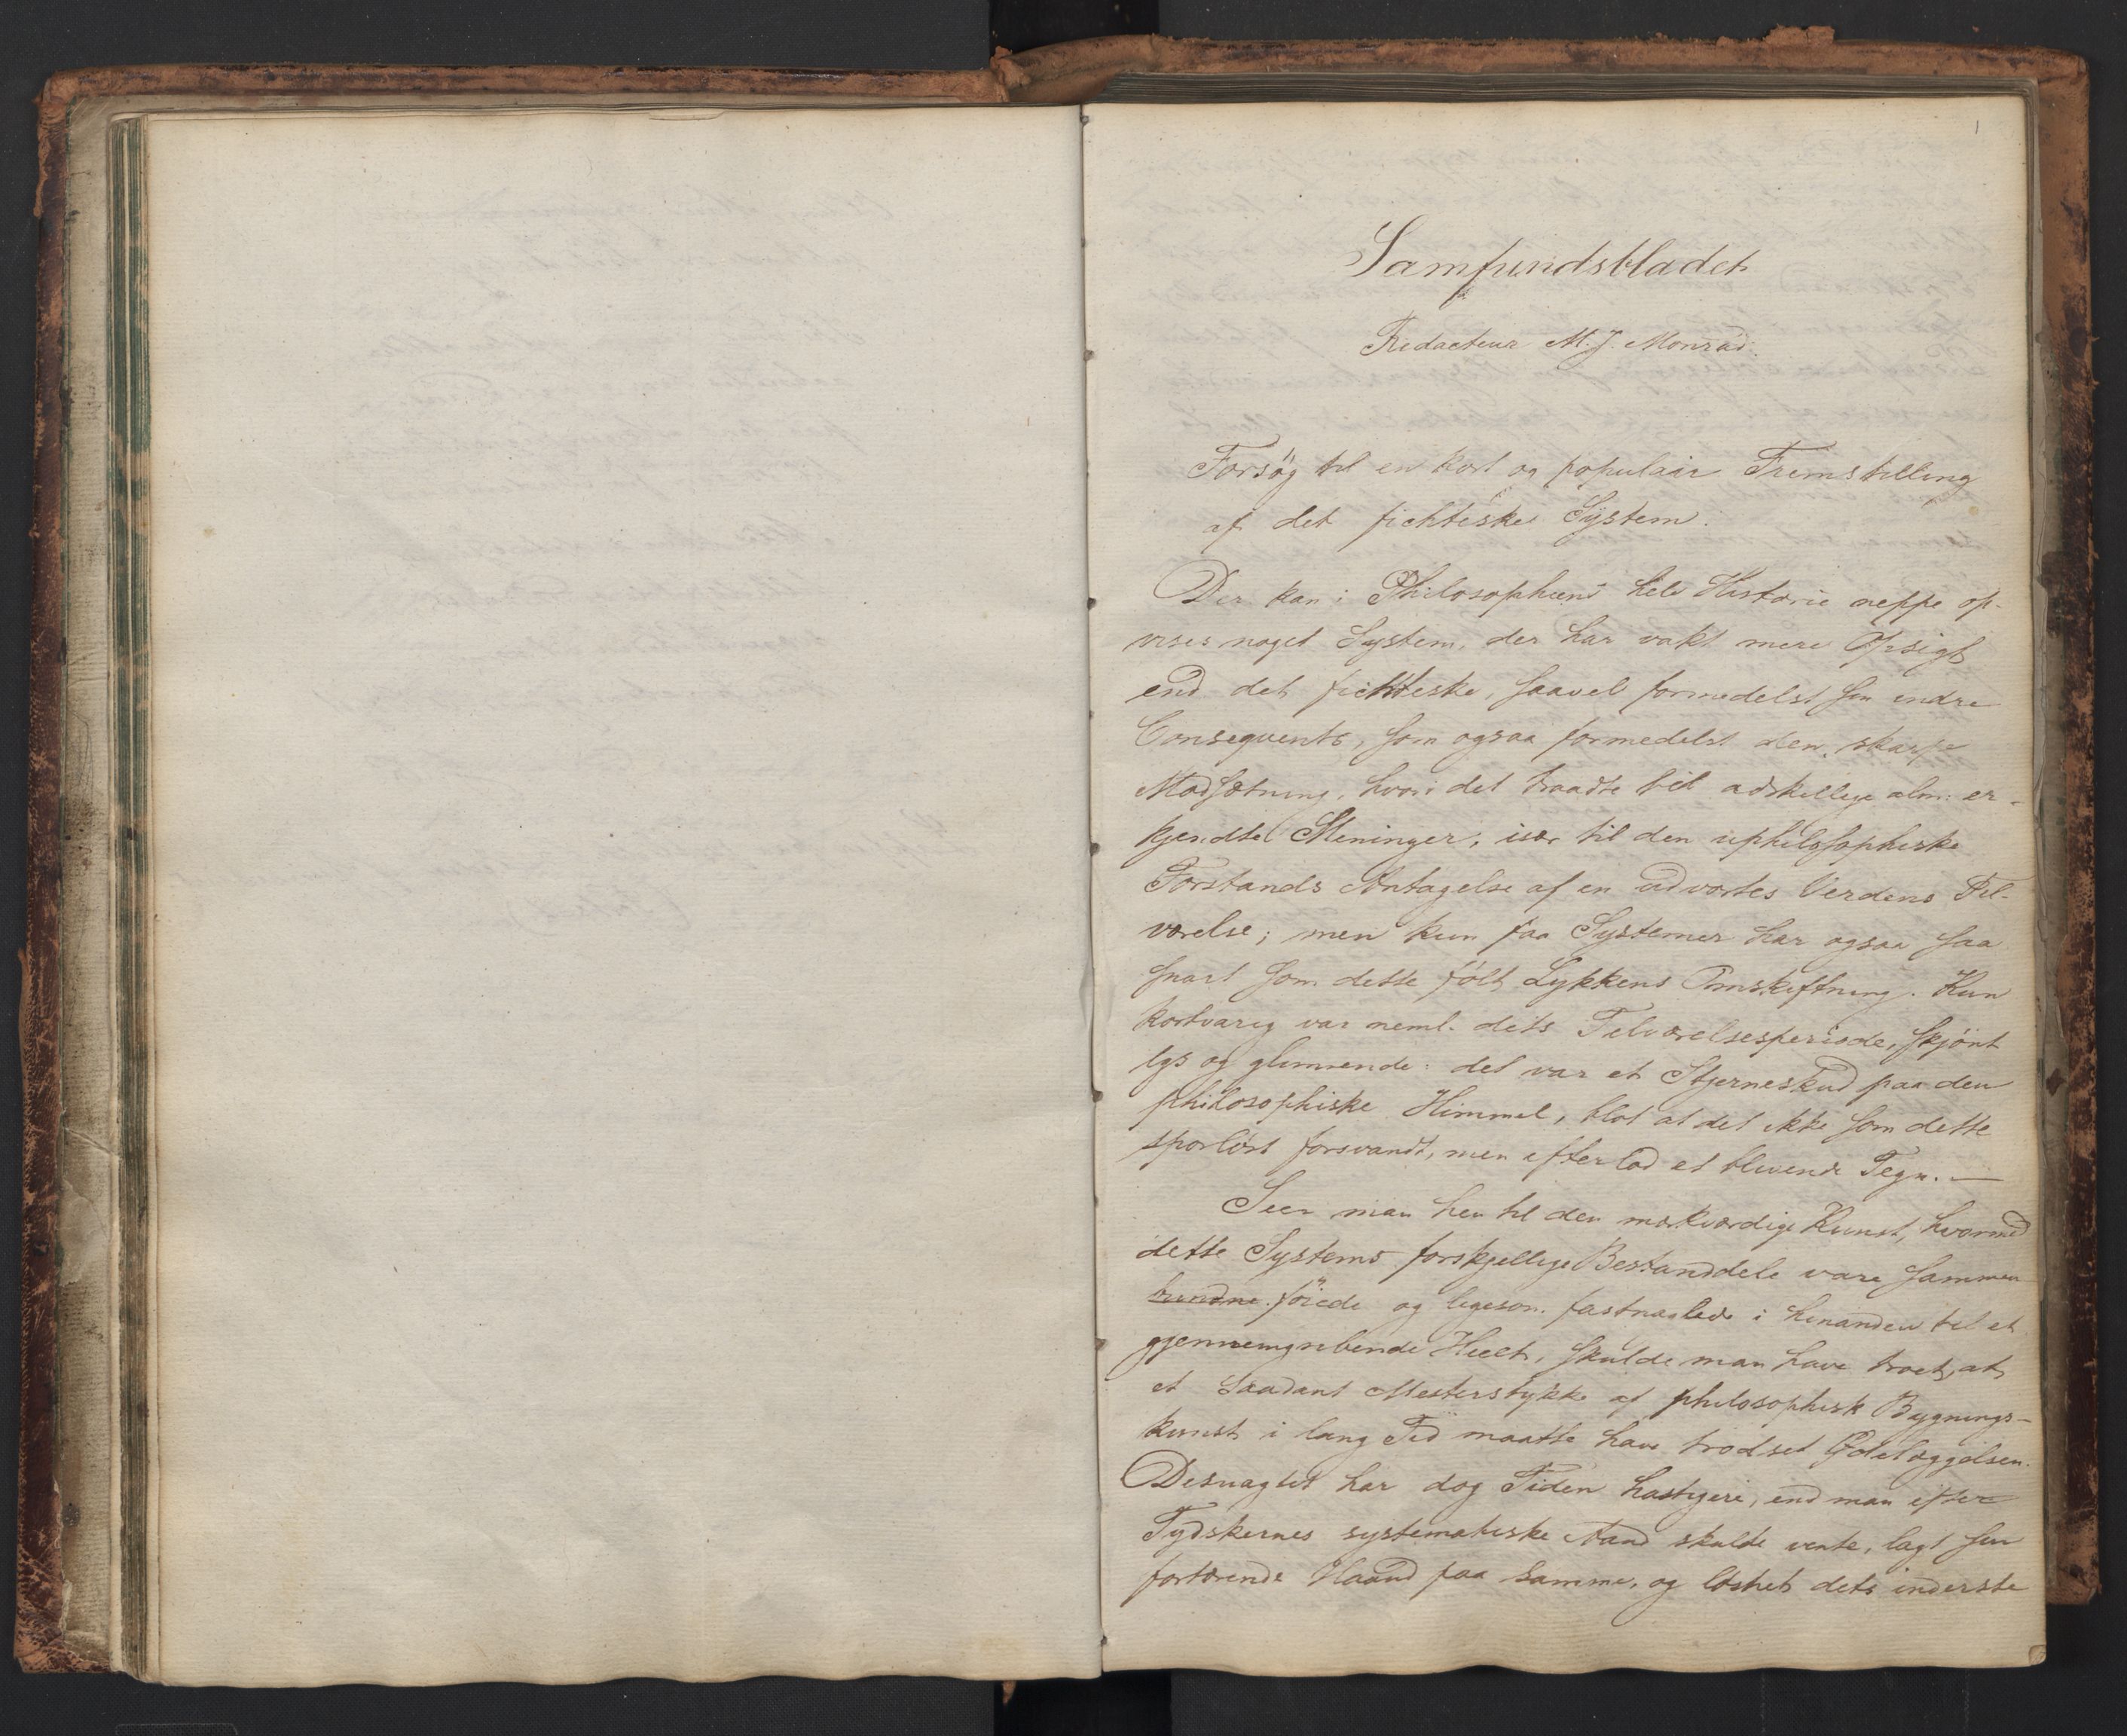 1
Samfundsbladet
Redacteur M. J. Monrad.
Forsøg til en kort og populair Fremstilling
af det fichteske System.
Der kan i Philosophiens hele Historie neppe op-
vises noget System, der har vakt mere Opsigt
end det fichteske, saavel formedelst sin indre
Consequents, som ogsaa formedelst den skarpe
Modsætning, hvori det traadte til adskillige alm: er-
kjendte Meninger, især til den uphilosophiske
Forstands Antagelse af en udvortes Verdens Til-
værelse; men kun faa Systemer har ogsaa saa
snart som dette følt Lykkens Omskiftning. Kun
kortvarig var neml. dets Tilværelsesperiode, skjønt
lys og glimrende: det var et Stjerneskud paa den
philosophiske Himmel, blot at det ikke som dette
sporløst forsvandt, men efterlod et blivende Tegn. —
Seer man hen til den mærkværdige Kunst, hvormed
dette Systems forskjellige Bestanddele vare sammen
bundne føiede og ligesom fastnaglede i hinanden til et
gjennemgribende Heelt, skulde man have troet, at
et saadant Mesterstykke af philosophisk Bygnings-
kunst i lang Tid maatte have trodset Ødelæggelsen.
Desuagtet har dog Tiden hastigere, end man efter
Tydskernes systematiske Aand skulde vente, lagt sin
fortærende Haand paa samme, og løsnet dets inderste